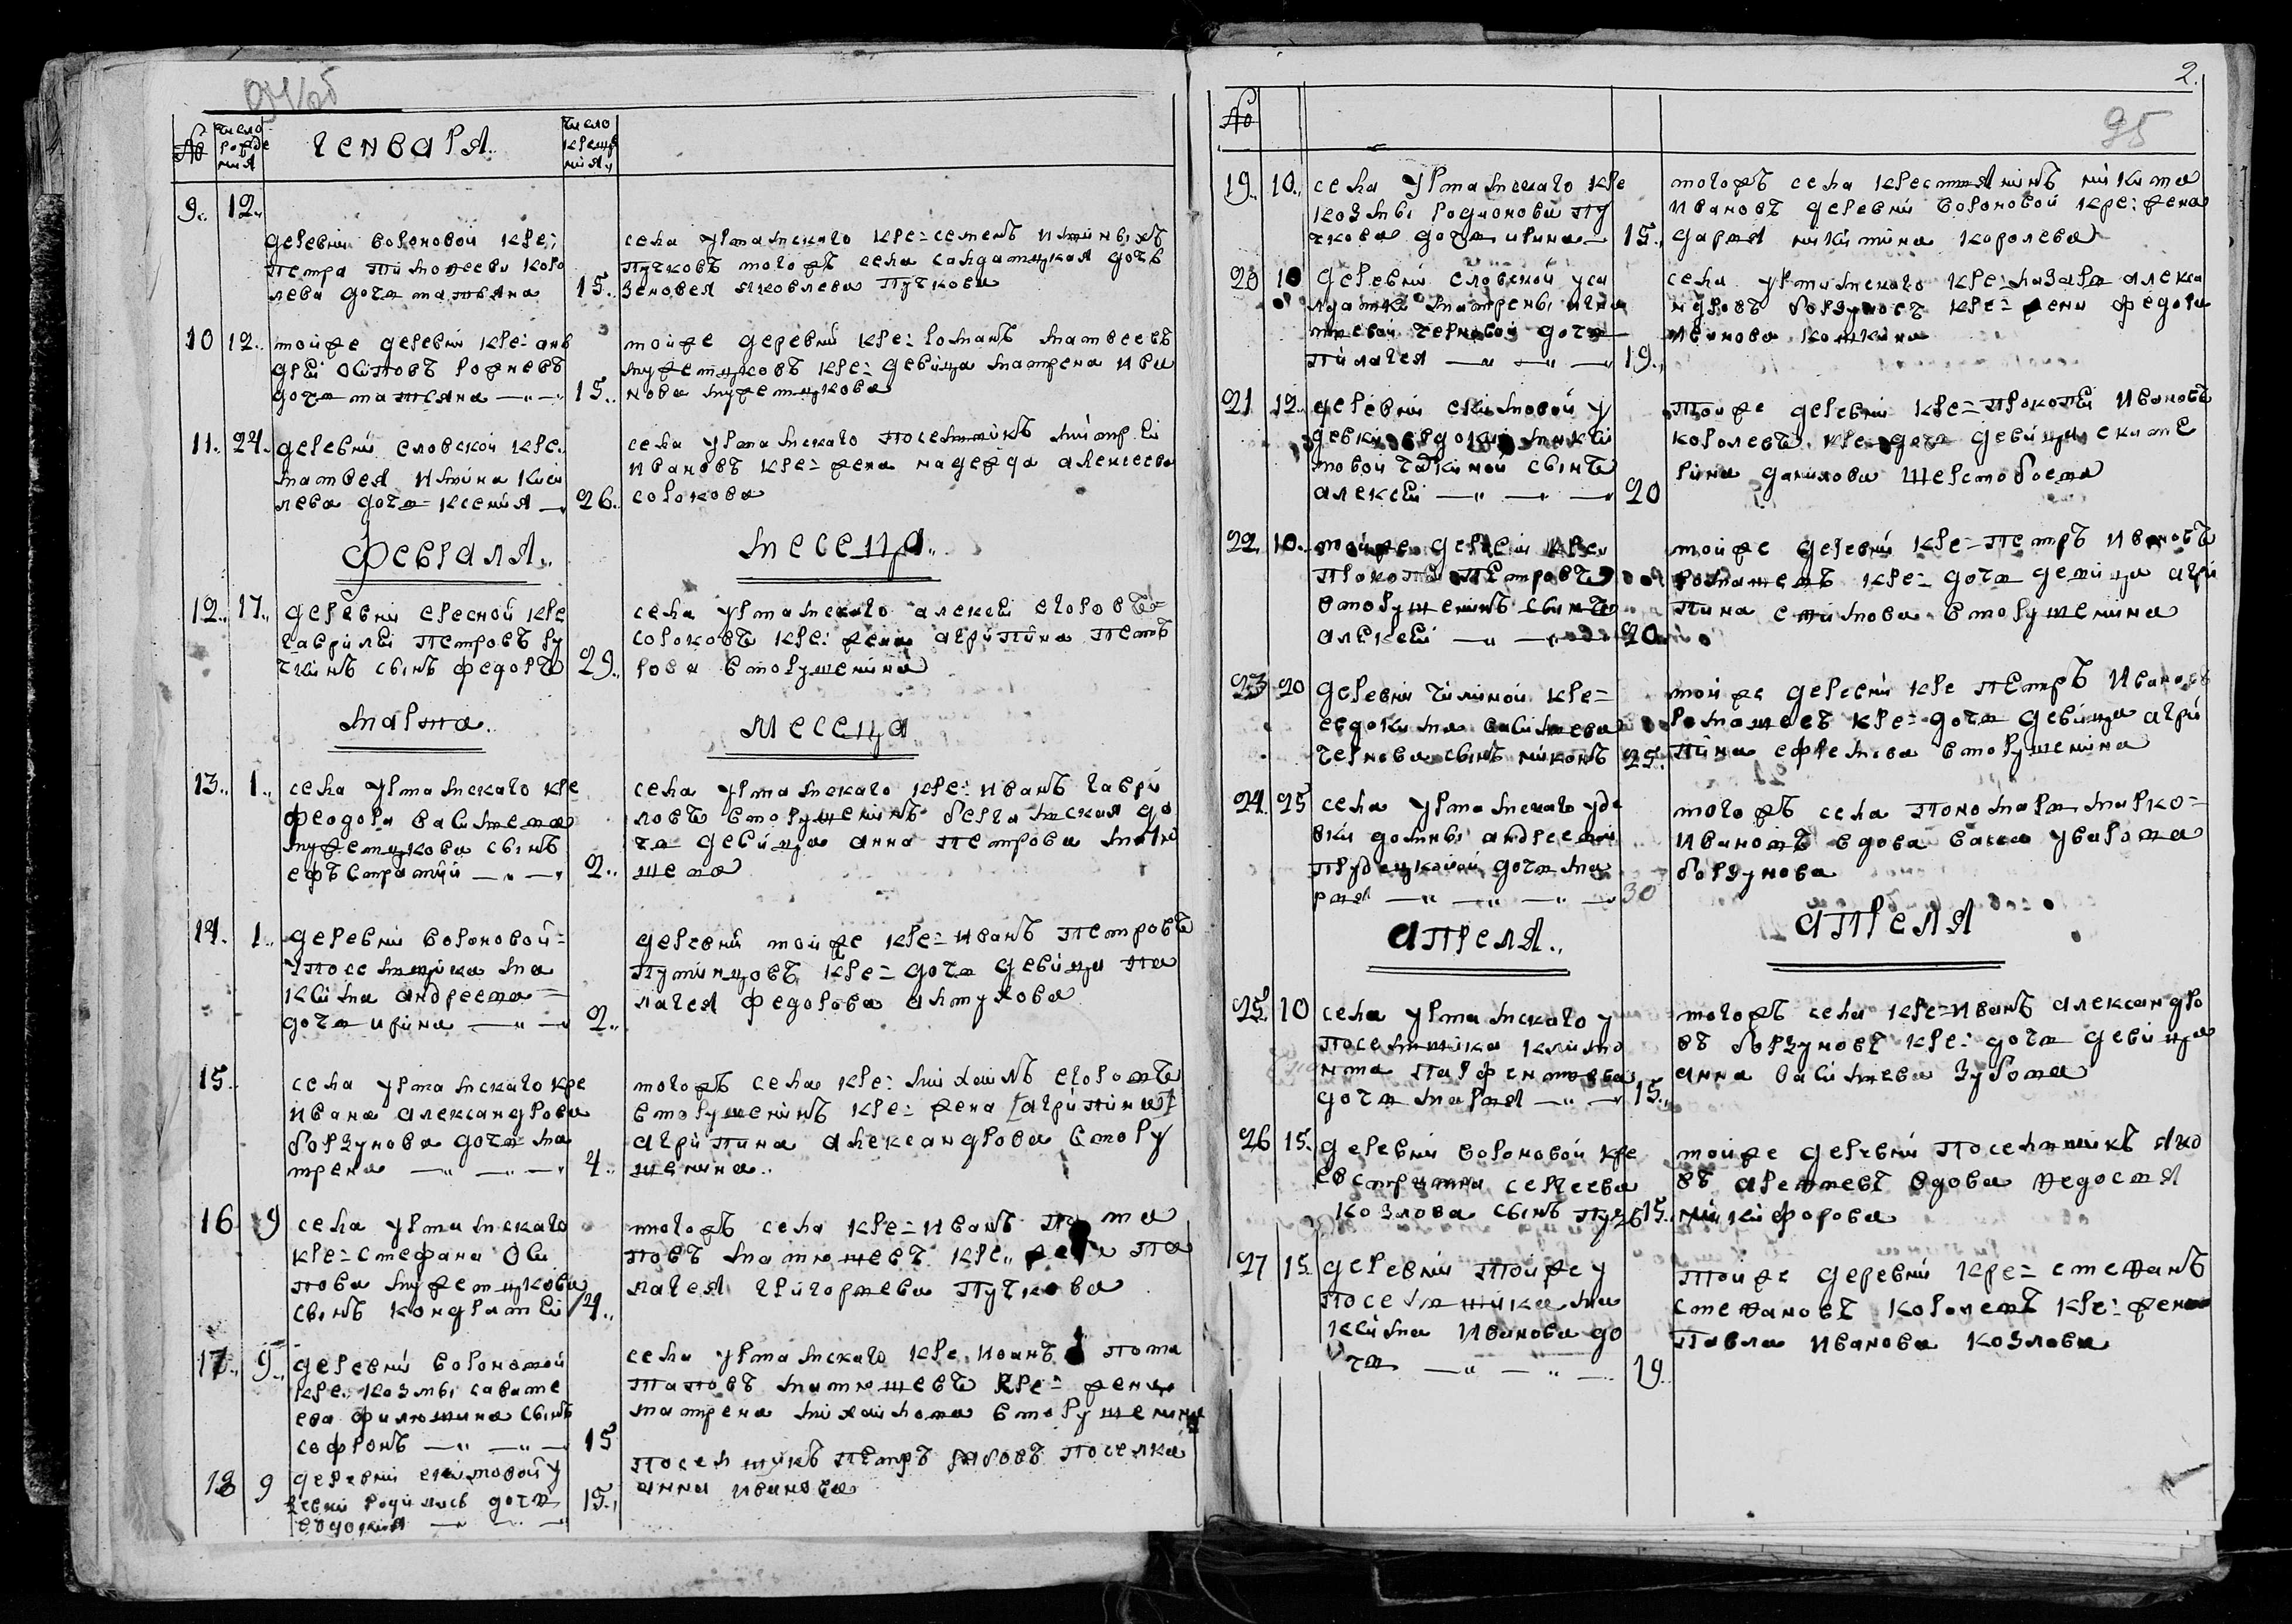 94об
№
число рожде ния
генваря
число креще ния
9. 12.
деревни вороновой кре:
петра тимофееви коро
лева доч татьяна 15.
села уртамскаго кре=семенъ
Пучковъ тогожъ села салдатцкая дочь
зеновея яковлева Пучкова
10 12. тойже деревни кре: анд
рей осиповъ
доч татьяна 15.
тойже деревни кре: романъ матвеевъ
мужетцковъ кре= девица матрена ива
нова мужетцкова
11. 24. деревни еловской кре.
матвея
лева доч= ксения 26.
села уртамскаго посельшикъ
ивановъ кре= жена надежда алексеева
сорокова
февраля.
месеца.
12. 17. деревни елесной кре
гаврилей петровъ
сынъ федоръ 29.
села уртамскаго алексей егоровъ=
сороковъ кре: жена агрипина пет
рова вторушенина
марта.
месеца
13. 1. села уртамскаго кре
феодора васильева
мужетцкова сынъ
ефъстратий 2.
села уртамскаго кре: иванъ гаври
ловъ вторушенинъ до
ч девица анна петрова матю
шева
14. 1. деревни вороновой=
упоселыцика ма
ксима андреева=
доч ирина 2.
деревни тойже кре= иванъ петровъ
Путинцовъ кре= доч девица па
лагея федорова алтухова
15. села уртамскаго кре
ивана александрова
борзунова доч ма
трена 4.
тогожъ села кре: михаилъ егоровъ
вторушенинъ кре: жена [агрипина]
агрипина александрова втору
шенина.
16 9 села уртамскаго
кре= стефана оси
пова мужетцкова
сынъ кондратей 14.
тогожъ села кре= иванъ пота
повъ матюшевъ кре. жена па
лагея григорьева Пучкова
17. 9. деревни вороновой
кре: козмы савате
ева филюшина сынъ
софронъ 15
села уртамскаго кре. иоанъ пота
таповъ матюшевъ кре= жена
матрена михаилова вторушенина
18 9 деревни екимовой у
девки родилась доч
евдокия 15.
посельщикъ петръ поселка
анна иванова
2.
95
№
19. 10. села уртамскаго кре
козмы родионова Пу
чкова доч ирина 15.
тогожъ села крестьянинъ никита
ивановъ деревни вороновой кре: жена
дарья никитина королева
20 10 деревни еловской уса
лдатки матрены
черновой доч
пилагея 19.
села уртамскаго кре: лазарь алекса
ндровъ борзуновъ кре= жена федора
иванова кошкина
21 12. деревни екимовой у
девки евдокии
сынъ
алексей 20
тойже деревни кре= прокопей ивановъ
королевъ кре= доч девица екате
рина данилова шерстобоева
22. 10. тойже деревни кре
прокопей петровъ
вторушенинъ сынъ
алексей 20
тойже деревни кре= петръ ивановъ
ромашевъ кре= доч девица агри
пина вторушенина
23 20 деревни чилиной кре=
евдокима васильева
чернова сынъ никонъ 25.
тойже деревни кре петръ ивановъ
ромашевъ кре= доч девица агри
пина ефремова вторушенина
24. 25 села уртамскаго удо
вки домны андреевой
доч ма
рья 30
тогожъ села пономаря марко=
ивановъ вдова васса уварова
борзунова
апреля.
апреля
25. 10 села уртамскаго у
поселыцика климо
нта парфентьева
доч марья 15.
тогожъ села кре=иванъ александро
въ борзуновъ кре: доч девица
анна васильева зубова
26 15. деревни вороновой кре
евстратия сергеева
козлова сынъ 15.
тойже деревни посельшикъ яко
въ вдова федосья
никифорова
27 15 деревни тойже у
поселыцика ма
ксима иванова до
ч 19.
тойже деревни кре= степанъ
степановъ королевъ кре= жена
павла иванова козлова